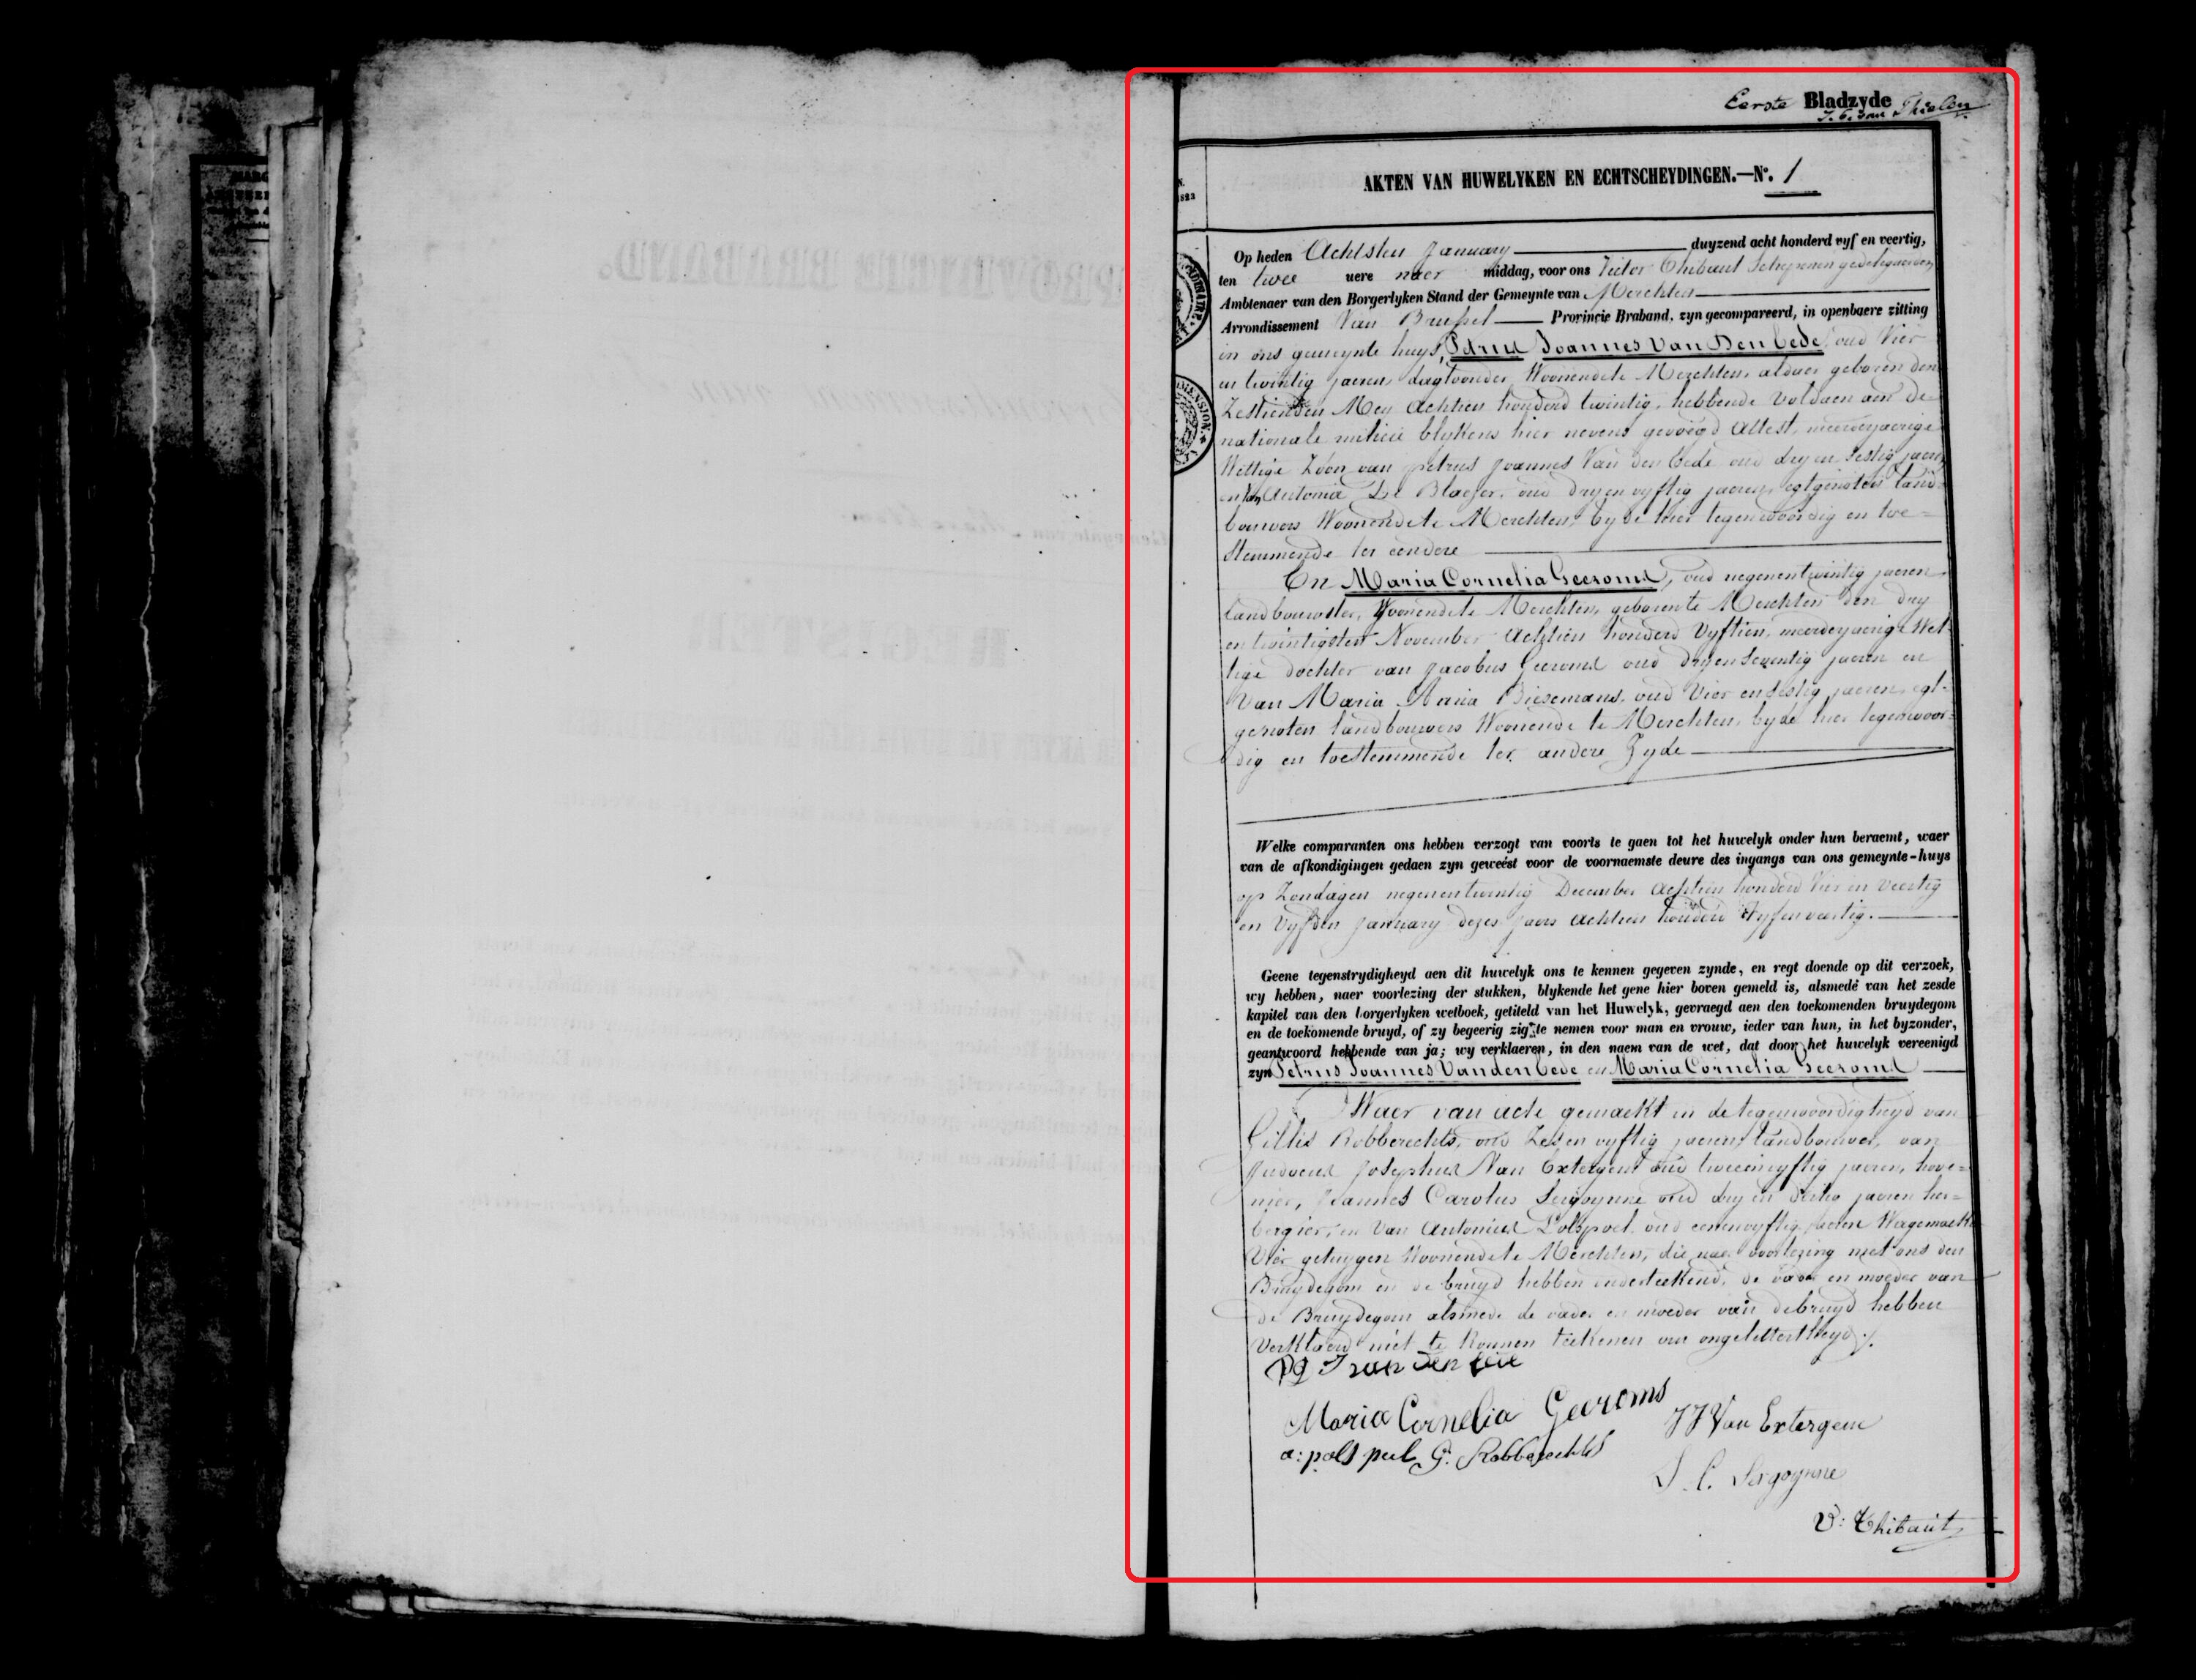 Eerste Bladzyde
Thielen
AKTEN VAN HUWELYKEN EN ECHTSCHEYDINGEN.—N°. 1
Op heden Achtsten January duyzend acht honderd vyf en veertig,
ten twee uere naer middag, voor ons Victor Thibaut Schepenen gedelegueerden
Ambtenaer van den Borgerlyken Stand der Gemeynte van Merchten
Arrondissement Van Brussel Provincie Braband, zyn gecompareerd, in openbaere zitting
in ons gemeynte huys, Petrus Joannes Van Den Eede, oud Vier
en twintig jaeren, dagloonder Woonende te Merchten, aldaer geboren den
Zestienden Mey Achtien honderd twintig, hebbende voldaen aen de
nationale milicie blykens hier nevens gevoégd Attest, meerderjaerige
Wettige Zoon van petrus Joannes Van den Eede oud dry en sestig jaeren
en van Antonia De Blaeser, oud dry en vyftig jaeren, egtgenoten land-
bouwers Woonende te Merchten, byde hier tegenwoordig en toe=
stemmende ter eendere
En Maria Cornelia Geeroms, oud negenentwintig jaeren
landbouwster, Woonende te Merchten, geboren te Merchten den dry
en twintigsten November Achtien honderd Vyftien, meerderjaerige Wet-
tige dochter van Jacobus Geeroms oud dryenseventig jaeren en
Van Maria Anna Biesemans, oud Vier en sestig jaeren, egt-
genoten landbouwers Woonende te Merchten, byde hier tegenwoor-
dig en toestemmende ter andere Zyde
Welke comparanten ons hebben verzogt van voorts te gaen tot het huwelyk onder hun beraemt, waer
van de afkondigingen gedaen zyn geweést voor de voornaemste deure des ingangs van ons gemeynte-huys
op Zondagen negenentwintig December Achtien honderd Vier en Veertig
en Vyfden January dezes jaers Achtien honderd Vyfenveertig.
Geene tegenstrydigheyd aen dit huwelyk ons te kennen gegeven zynde, en regt doende op dit verzoek,
wy hebben, naer voorlezing der stukken, blykende het gene hier boven gemeld is, alsmedé van het zesde
kapitel van den borgerlyken wetboek, getiteld van het Huwelyk, gevraegd aen den toekomenden bruydegom
en de toekomende bruyd, of zy begeerig zig te nemen voor man en vrouw, ieder van hun, in het byzonder,
geantwoord hebbende van ja; wy verklaeren, in den naem van de wet, dat door het huwelyk vereenigd
zyn Petrus Joannes Van den Eede en Maria Cornelia Geeroms
Waer van acte gemaekt in de tegenwoordigheyd van
Gillis Robberechts, oud Zes en vyftig jaeren, landbouwer, van
Judocus Josephus Van Extergem oud tweeenvyftig jaeren, hove=
nier, Joannes Carolus Sergoynne oud dry en dertig jaeren her=
bergier, en Van Antonius Polspoel oud eenenvyftig jaeren Wagemaeker
Vier getuygen Woonende te Merchten, die naer voorlezing met ons den
Bruydegom en de bruyd hebben onderteekend, de vader en moeder van
de Bruydegom alsmede de vader en moeder van de bruyd hebben
Verklaerd niet te konnen teekenen om ongelettertheyd.
Van den Eede
Maria Cornelia Geeroms JJ Van Extergem
a: pols pul G. Robberechts
J. C. Sergoynne
V: Thibaut